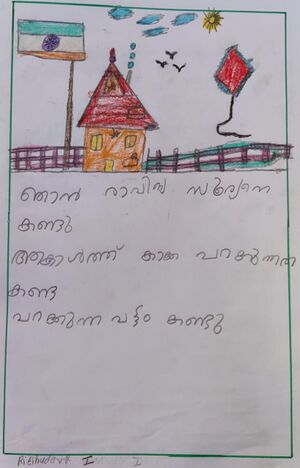 ഞാൻ രാവിലെ സൂര്യനെ
കണ്ടു
ആകാശത്ത് കാക്ക പറക്കുന്നത്
കണ്ട
പറക്കുന്ന പട്ടം കണ്ടു
I
I